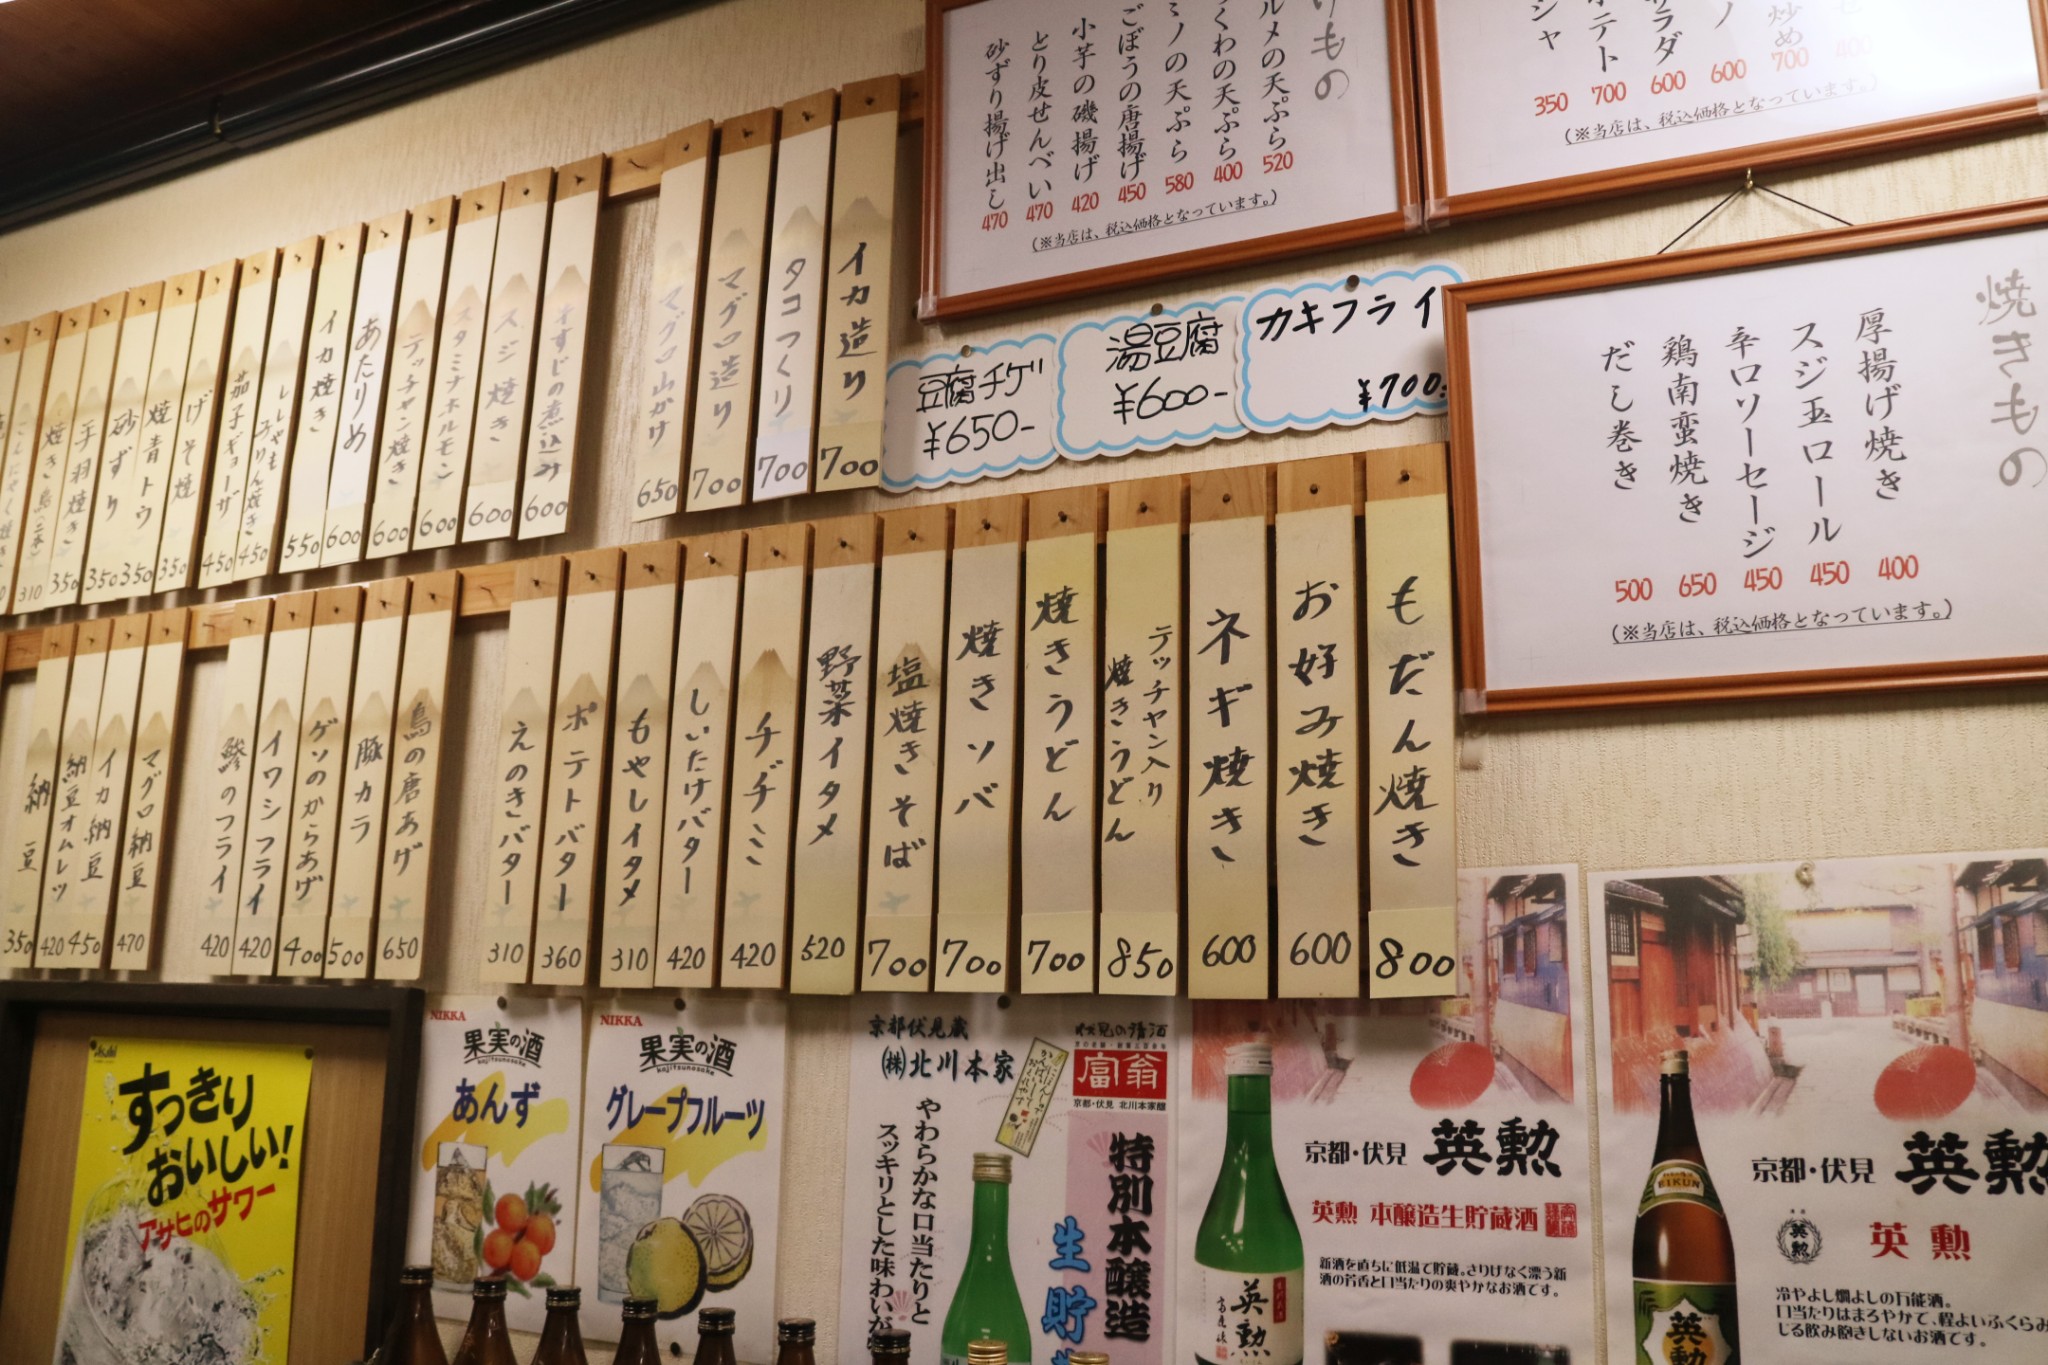 イカ造り
700
タコつくり
700
マグロ造り
700
マグロ山かけ
650
すじの煮込み
600
スジ焼き
600
スタミナホルモン
600
テッチャン焼き
600
あたりめ
600
イカ焼き
550
ししゃも
みりん焼き
450
茄子ギョーザ
450
げそ焼
350
焼青トウ
350
砂ずり
350
手羽焼き
350
焼き鳥(二本)
310
こんにゃく焼き
もだん焼き
800
お好み焼き
600
ネギ焼き
600
テッチャン入り
焼きうどん
850
焼きうどん
700
焼きソバ
700
塩焼きそば
700
野菜イタメ
520
チヂミ
420
しいたけバター
420
もやしイタメ
310
ポテトバター
360
えのきバター
310
鳥の唐あげ
650
豚カラ
500
ゲソのからあげ
400
イワシフライ
420
鯵のフライ
420
マグロ納豆
470
イカ納豆
450
納豆オムレツ
420
納豆
350
豆腐チゲ
¥650-
湯豆腐
¥600-
カキフライ
¥700-
けもの
ルメの天ぷら 520
くわの天ぷら 400
ミノの天ぷら 580
ごぼうの唐揚げ 450
小芋の磯揚げ 420
とり皮せんべい 470
砂ずり揚げ出し 470
(※当店は、税込価格となっています。)
炒め 700
ノ 600
サラダ 600
ポテト 700
シャ 350
400
(※当店は、税込価格となっています。)
焼きもの
厚揚げ焼き 400
スジ玉ロール 450
辛口ソーセージ 450
鶏南蛮焼き 650
だし巻き 500
(※当店は、税込価格となっています。)
Asahi
すっきり
おいしい!
アサヒのサワー
NIKKA
果実の酒
kajitsunosake
あんず
NIKKA
果実の酒
kajitsunosake
グレープフルーツ
京都伏見蔵
(株)北川本家
やわらかな口当たりと
スッキリとした味わいが
伏見の清酒
富翁
京都・伏見 北川本家醸
特別本醸造
生貯
京都・伏見 英勲
英勲 本醸造生貯蔵酒
新酒を直ちに低温で貯蔵。さりげなく漂う新
酒の芳香と口当たりの爽やかなお酒です。
英勲
京都・伏見 英勲
英勲
英勲
冷やよし燗よしの万能酒。
口当たりはまろやかで、程よいふくらみ
じる飲み飽きしないお酒です。
EIKUN
英勲